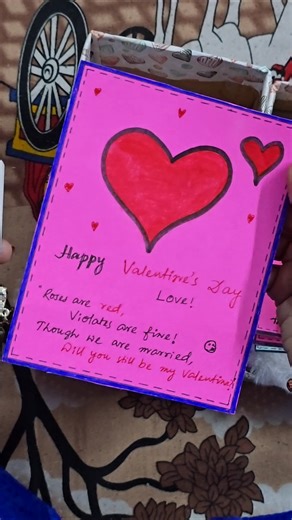 Happy Valentine's Day
Love!
"Roses are red,
Violates are fine!
Though we are married,
Will you still be my Valentine!